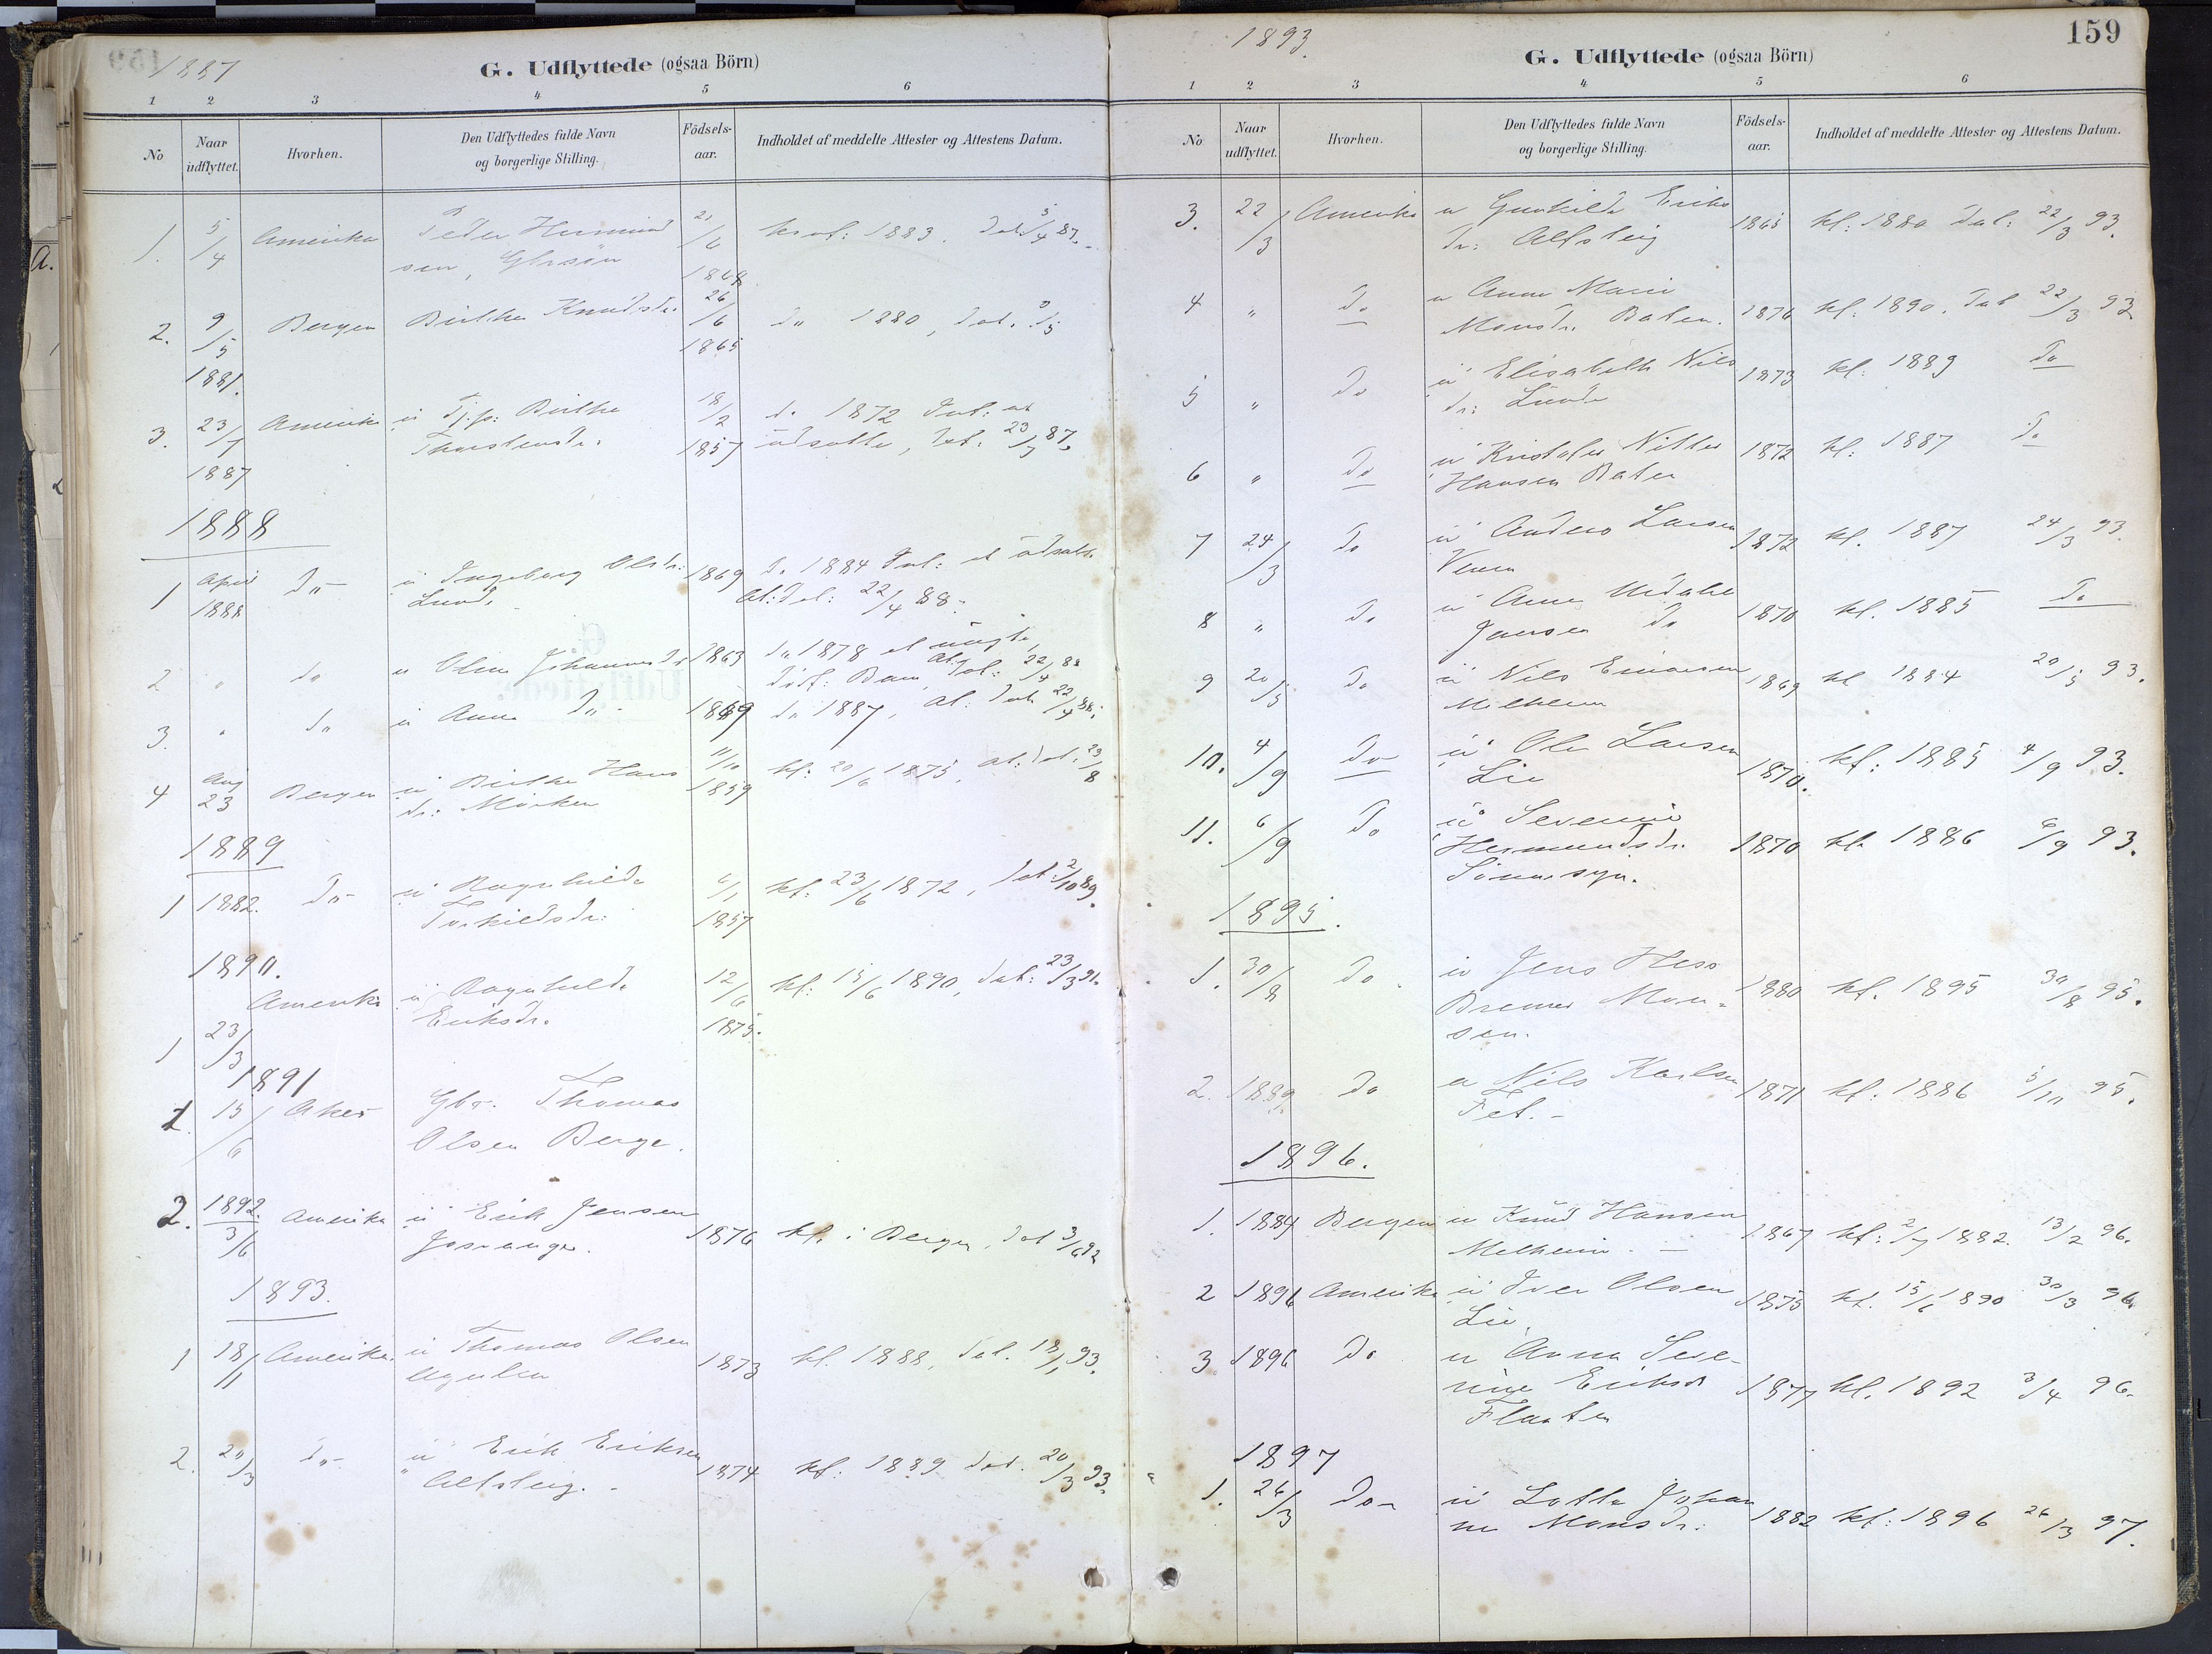 1887
G. Udflyttede (ogsaa Börn)
1 2 3 4 5 6
No Naar udflyttet. Hvorhen. Den Udflyttedes fulde Navn og borgerlige Stilling. Födsels-aar. Indholdet af meddelte Attester og Attestens Datum.
1. 5/4 Amerika Peder Hermund 21/6
sen, 1868
2. 9/5 Bergen Birthe Knudsdr. 26/6 do 1880, dat.
1881. 1865
3. 23/7 Amerika Birthe 18/2 do 1872
1887 Thorstensdr. 1857 dat: 23/7 87.
1888
1 April do ü Ingeborg Olsdr. 1869 do 1884
1888 Lund. at: dat: 22/4 88.
2 " do u Johannesdr 1863 do 1878
at. dat: 22/4 88
3. " do ü Anna do 1869 do 1887, at: dat 22/4 88.
4 Aug Bergen ü Birthe Hans 11/10 kf: 20/6 1875, at: dat: 23/8
23 dr: Mörken 1859
1889
1 1882. do ü Ragnhilde 6/1 kf: 23/6 1872, dat: 2/10 89.
Torkildsdr: 1857
1890.
Amerika ü Ragnhilde 12/6 kf: 15/6 1890, dat: 23/3 91.
1 23/3 Eriksdr. 1875.
1891
1. 15/6 Aker Gbr. Thomas
Olsen Berge.
2. 1892. Amerika ü Erik Jensen 1876 kf. i Bergen, dat 3/6 92
3/6 Josranger.
1893.
1 18/1 Amerika. ü Thomas Olsen 1873 kf. 1888, dat. 18/1 93.
2. 20/3 do ü Erik Eriksen 1874 kf: 1889 dat. 20/3 93.
Alfsteig.
1893.
159
G. Udflyttede (ogsaa Börn)
1 2 3 4 5 6
No Naar udflyttet. Hvorhen. Den Udflyttedes fulde Navn og borgerlige Stilling. Födsels-aar. Indholdet af meddelte Attester og Attestens Datum.
3. 22/3 Amerika u Gunhilde Eriks 1865 kf: 1880 dat: 22/3 93.
dr: Alfsteig
4 " do u Anna Marie 1876 kf. 1890. dat 22/3 93
Monsdr. Baten.
5 " do ü Elisabeth Nils 1873 kf: 1889 do
dr: Lunde
6 " do ü Kristofer Nitter 1872 kf: 1887 do
Hansen Baten
7 24/3 do ü Anders Larsen 1872 kf. 1887 24/3 93.
8 " do ü Anna 1870 kf. 1885 do
Jensen do
9 20/5 do ü Nils Einarsen 1869 kf 1884 20/5 93.
Melheim
10. 4/9 do ü Ole Larsen 1870. kf: 1885 4/9 93.
Lie
11. 6/9 do ü Severine 1870 kf. 1886 6/9 93.
Hermundsdr.
1895.
1. 30/8 do. ü Jens Hess 1880 kf. 1895 30/8 95.
Bremer Mon-
sen.
2. 1889. do u Nils Karlsen 1871 kf: 1886 5/10 95.
Fet.-
1896.
1. 1884 Bergen u Knud Hansen 1867 kf: 2/7 1882. 13/2 96.
Melheim.
2 1896 Amerika ü Iver Olsen 1875 kf. 15/6 1890 30/3 96.
Lie
3 1896 do u Anna Seve-
rine Eriksdr 1877 kf. 1892 3/4 96.
Flaaten
1897
1. 26/3 do- ü Lotta Johan
ne Monsdr: 1882 kf: 1896 26/3 97.